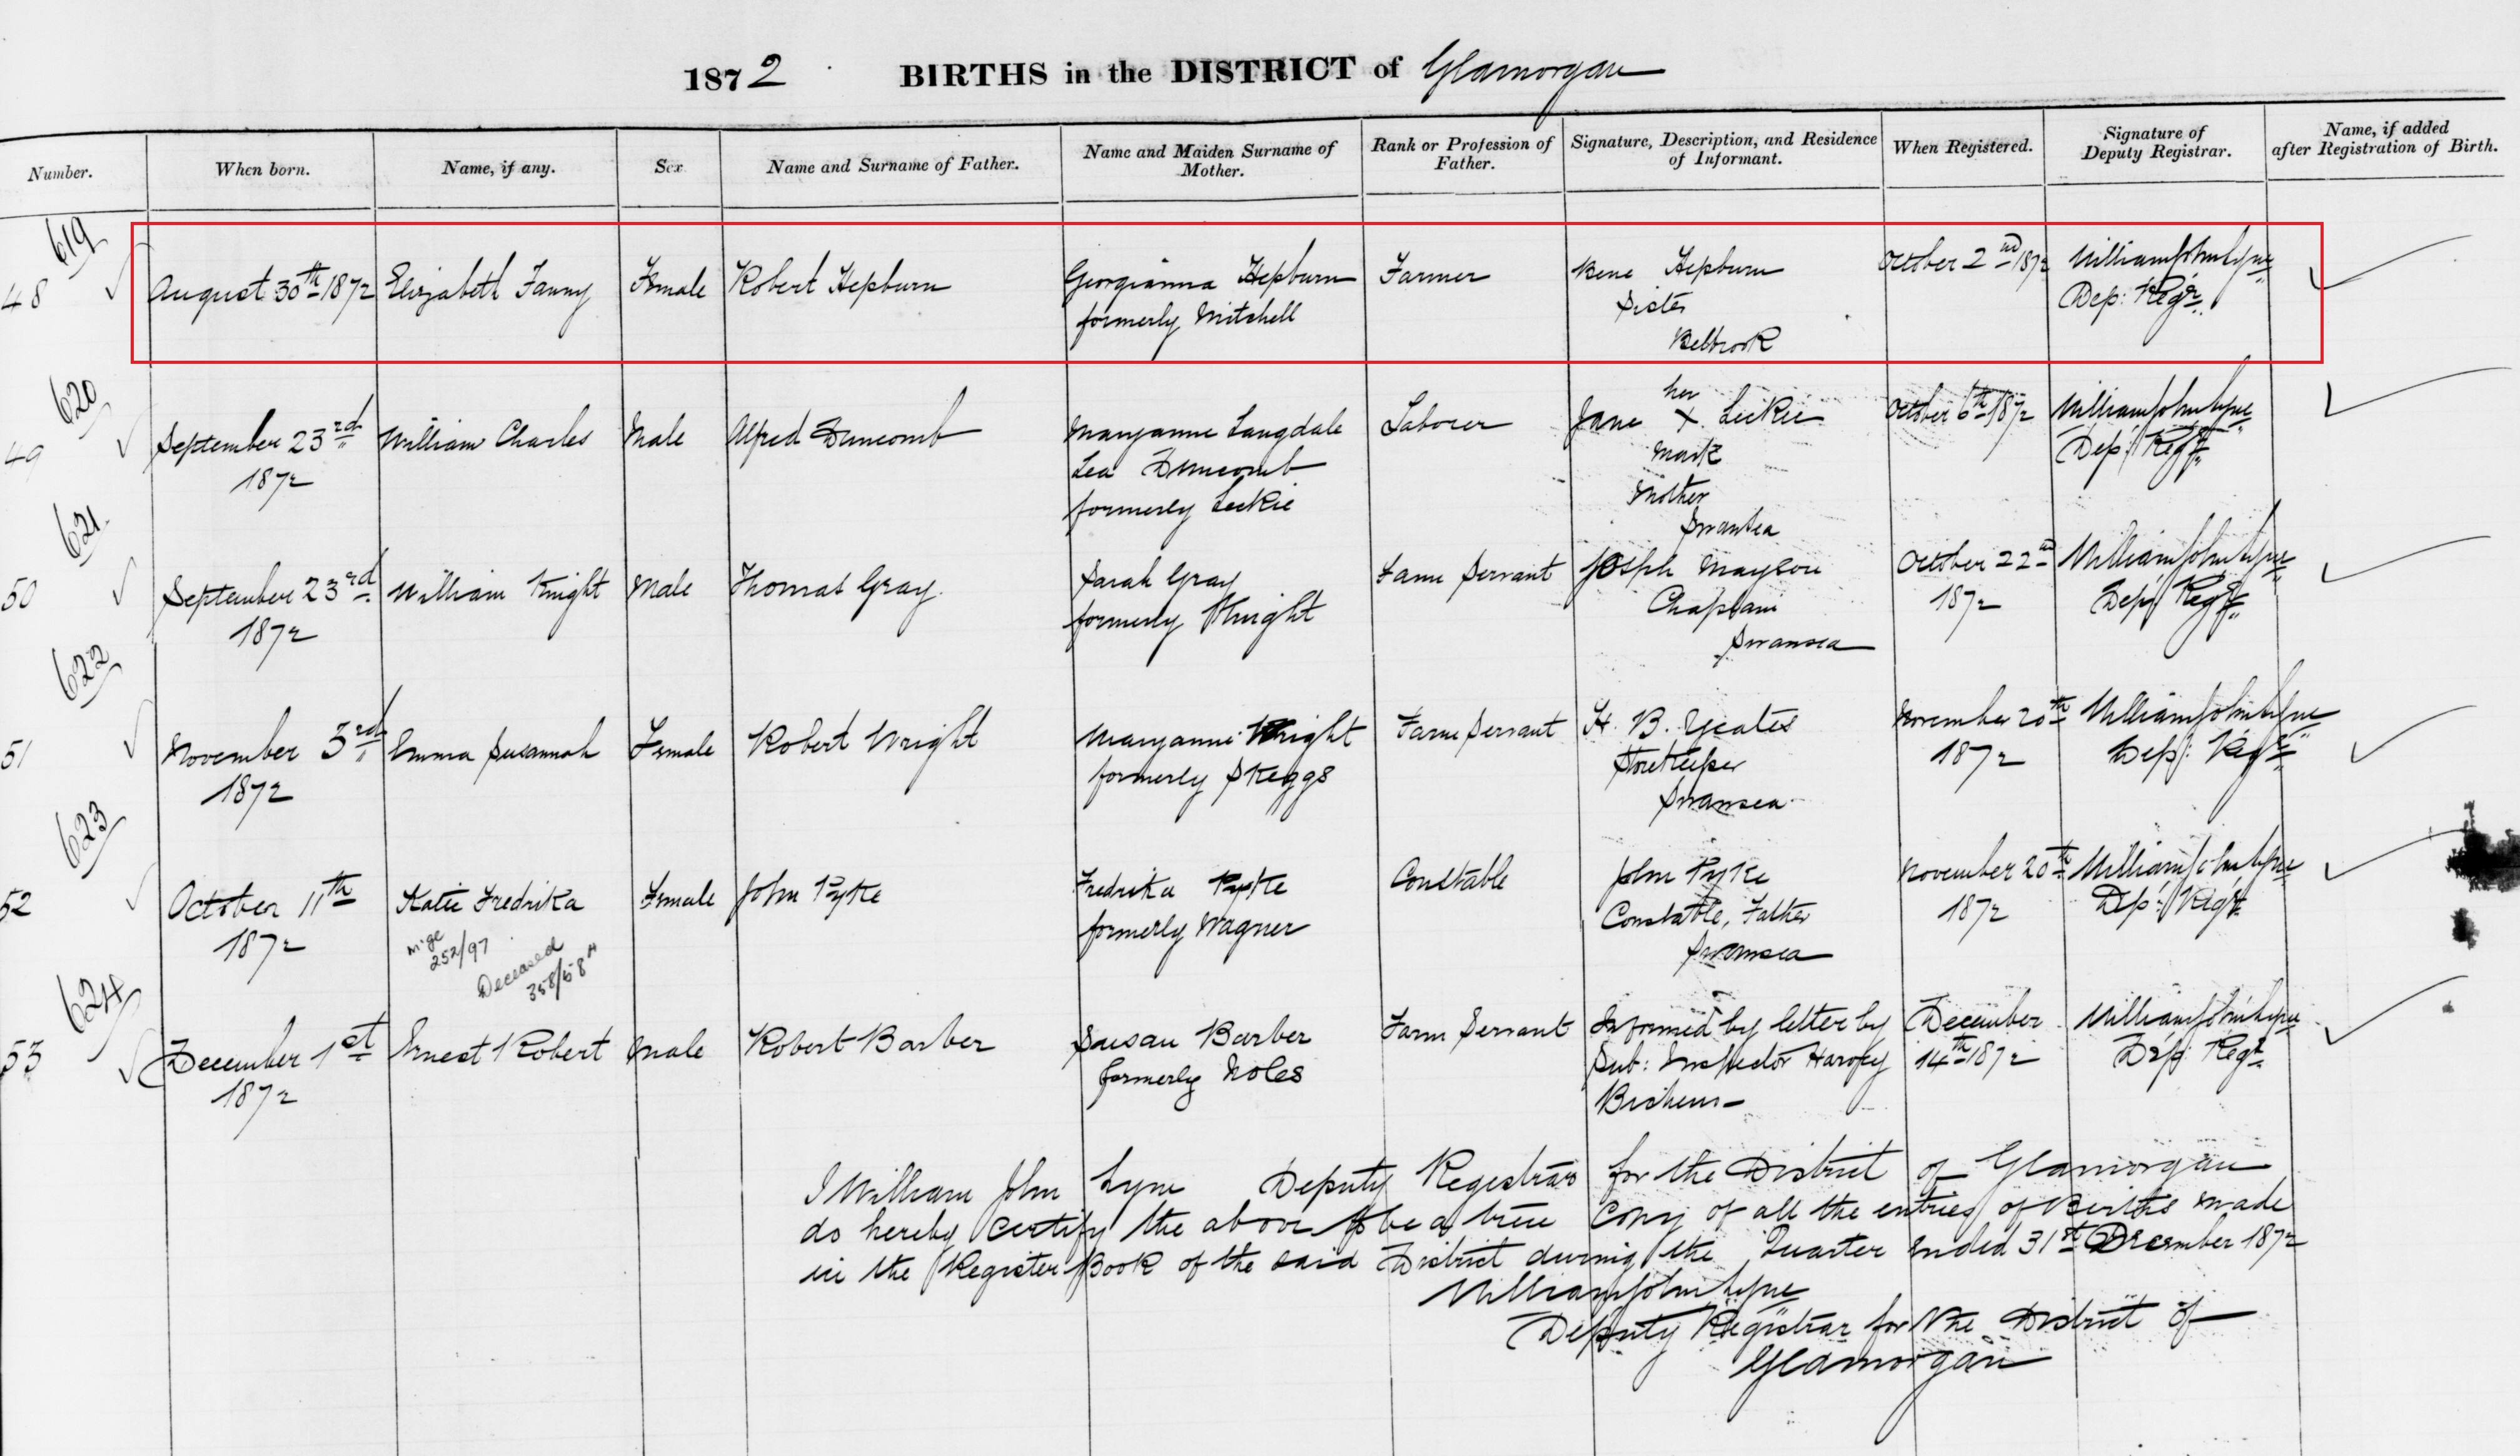 1872 BIRTHS in the DISTRICT of Glamorgan
Number. When born. Name, if any. Sex Name and Surname of Father. Name and Maiden Surname of Mother. Rank or Profession of Father. Signature, Description, and Residence of Informant. When Registered. Signature of Deputy Registrar. Name, if added after Registration of Birth.
619
48 August 30th 1872 Elizabeth Fanny Female Robert Hepburn Georgianna Hepburn Farmer Hepburn October 2nd 1872 William John Lyne
formerly Mitchell Sister Dep: Regr.
620
49 September 23rd William Charles Male Alfred Duncomb Maryanne Langdale Laborer Jane her X mark Leckie October 6th 1872 William John Lyne
1872 Lea Duncomb Mother Dep: Regr.
formerly Leckie Swansea
621
50 September 23rd William Knight Male Thomas Gray Sarah Gray Farm Servant Joseph Mayson October 22nd William John Lyne
1872 formerly Knight Chaplain 1872 Dep: Regr.
Swansea
622
51 November 3rd Emma Susannah Female Robert Wright Maryanne Wright Farm Servant H. B. Yeates November 20th William John Lyne
1872 formerly Skeggs Storekeeper 1872 Dep: Regr.
Swansea
623
52 October 11th Katie Fredrika Female John Pyke Fredrika Pyke Constable John Pyke November 20th William John Lyne
1872 formerly Wagner Constable, Father 1872 Dep: Regr.
Swansea
m'ge
252/97
Deceased
624
53 December 1st Ernest Robert Male Robert Barber Susan Barber Farm Servant Informed by letter by December William John Lyne
1872 formerly Noles Sub: Inspector 14th 1872 Dep: Regr.
I William John Lyne Deputy Registrar for the District of Glamorgan
do hereby certify the above to be a true Copy of all the entries of Births made
in the Register Book of the said District during the Quarter ended 31st December 1872
William John Lyne
Deputy Registrar for the District of
Glamorgan